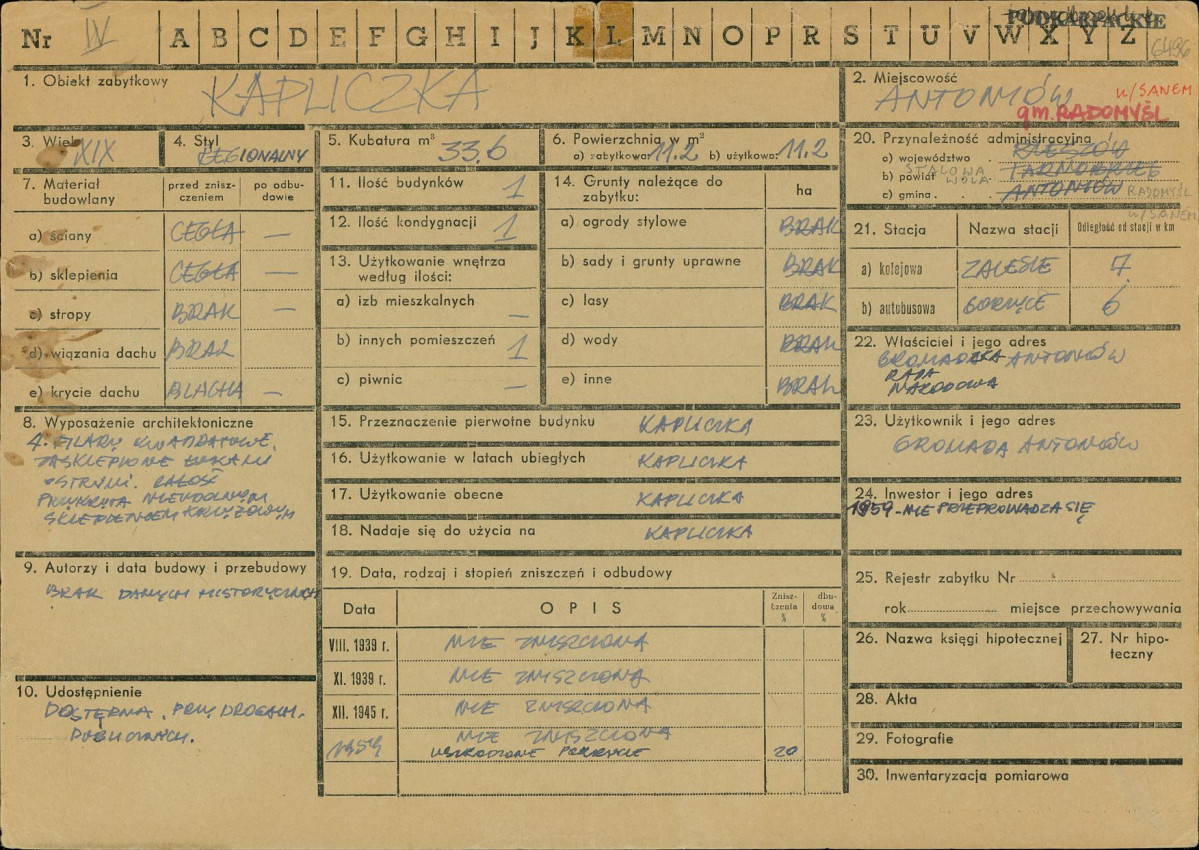 Nr IV A B C D E F G H I J K L M N O P R S T U V W X Y Z
PODKARPACKIE
6496
1. Obiekt zabytkowy KAPLICZKA
2. Miejscowość
ANTONIÓW n/SANEM
gm. RADOMYŚL
3. Wiek XIX
4. Styl REGIONALNY
5. Kubatura m³ 33.6
6. Powierzchnia w m²
a) zabytkowa: 11.2 b) użytkowa: 11.2
7. Materiał budowlany
przed zniszczeniem
po odbudowie
a) ściany CEGŁA —
b) sklepienia CEGŁA —
c) stropy BRAK —
d) wiązania dachu BRAK
e) krycie dachu BLACHA —
8. Wyposażenie architektoniczne
4. FILARY KWADRATOWE,
ZASKLEPIONE ŁUKAMI
OSTRYMI. CAŁOŚĆ
PRZYKRYTA NIEUDOLNYM
SKLEPIENIEM KRZYŻOWYM
9. Autorzy i data budowy i przebudowy
BRAK DANYCH HISTORYCZNYCH
10. Udostępnienie
DOSTĘPNA. PRZY DROGACH
PUBLICZNYCH.
11. Ilość budynków 1
12. Ilość kondygnacji 1
13. Użytkowanie wnętrza
według ilości:
a) izb mieszkalnych —
b) innych pomieszczeń 1
c) piwnic —
14. Grunty należące do
zabytku:
ha
a) ogrody stylowe BRAK
b) sady i grunty uprawne BRAK
c) lasy BRAK
d) wody BRAK
e) inne BRAK
15. Przeznaczenie pierwotne budynku KAPLICZKA
16. Użytkowanie w latach ubiegłych KAPLICZKA
17. Użytkowanie obecne KAPLICZKA
18. Nadaje się do użycia na KAPLICZKA
19. Data, rodzaj i stopień zniszczeń i odbudowy
Data OPIS Zniszczenia % dbudowa %
VIII. 1939 r. NIE ZNISZCZONA
XI. 1939 r. NIE ZNISZCZONA
XII. 1945 r. NIE ZNISZCZONA
NIE ZNISZCZONA
1959 USZKODZONE POKRYCIE 20
20. Przynależność administracyjna
a) województwo . RZESZÓW
b) powiat STALOWA WOLA TARNOBRZEG
c) gmina . . . ANTONIÓW RADOMYŚL
n/SANEM
21. Stacja Nazwa stacji Odległość od stacji w km
a) kolejowa ZALESIE 7
b) autobusowa GORZYCE 6
22. Właściciel i jego adres
GROMADZKA ANTONIÓW
RADA
NARODOWA
23. Użytkownik i jego adres
GROMADA ANTONIÓW
24. Inwestor i jego adres
1959 - NIE PRZEPROWADZA SIĘ
25. Rejestr zabytku Nr
rok miejsce przechowywania
26. Nazwa księgi hipotecznej
27. Nr hipoteczny
28. Akta
29. Fotografie
30. Inwentaryzacja pomiarowa